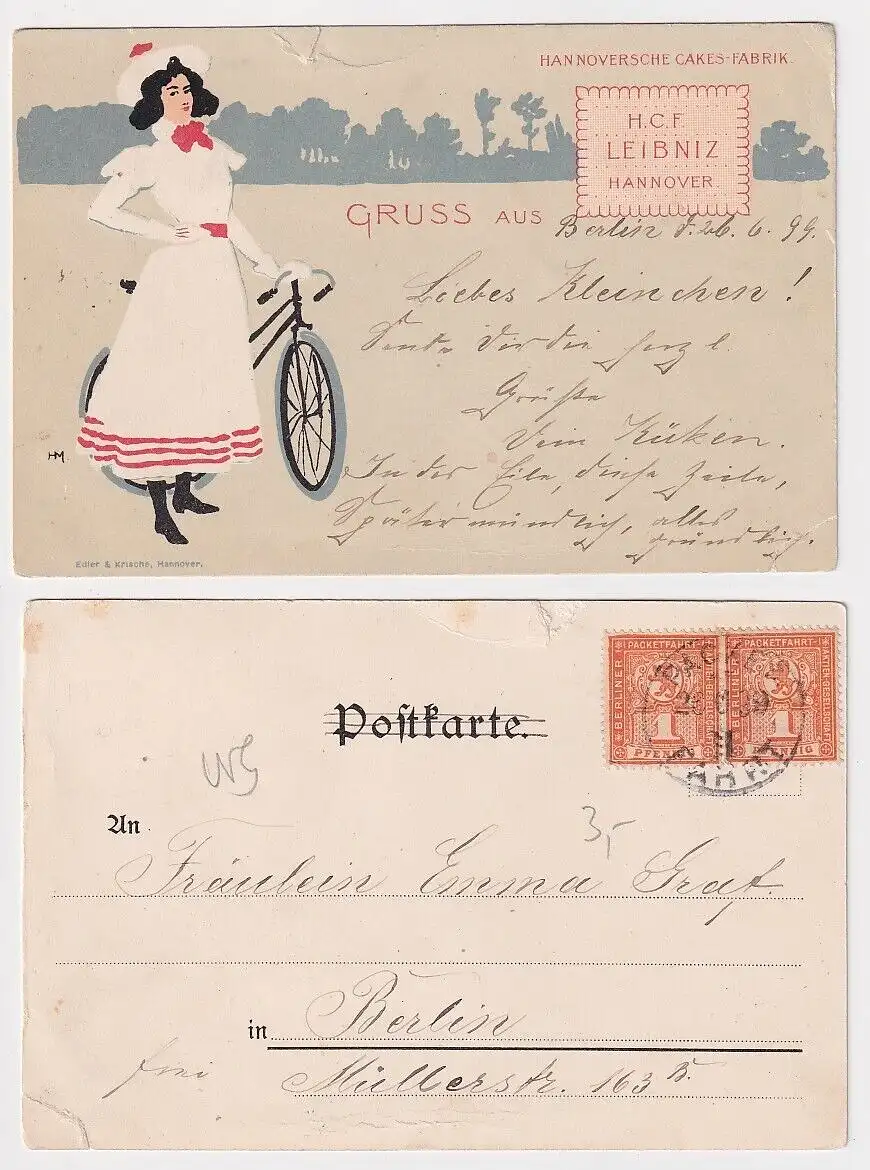 HANNOVERSCHE CAKES-FABRIK.
H.C.F
LEIBNIZ
HANNOVER
GRUSS AUS Berlin d. 26. 6. 99.
Liebes Kleinchen!
Sende Dir die herzl.
Grüße
Dein Küken.
In der Eile, diese Zeile,
Später mündlich, alles
gründlich.
HM
Edler & Krische, Hannover.
BERLINER PACKETFAHRT ACTIENGESELLSCHAFT
1
PFENNIG
BERLINER PACKETFAHRT ACTIENGESELLSCHAFT
1
PFENNIG
Postkarte.
WS
3,-
An
Fräulein Emma Graf.
in Berlin
frei
Müllerstr. 163 B.